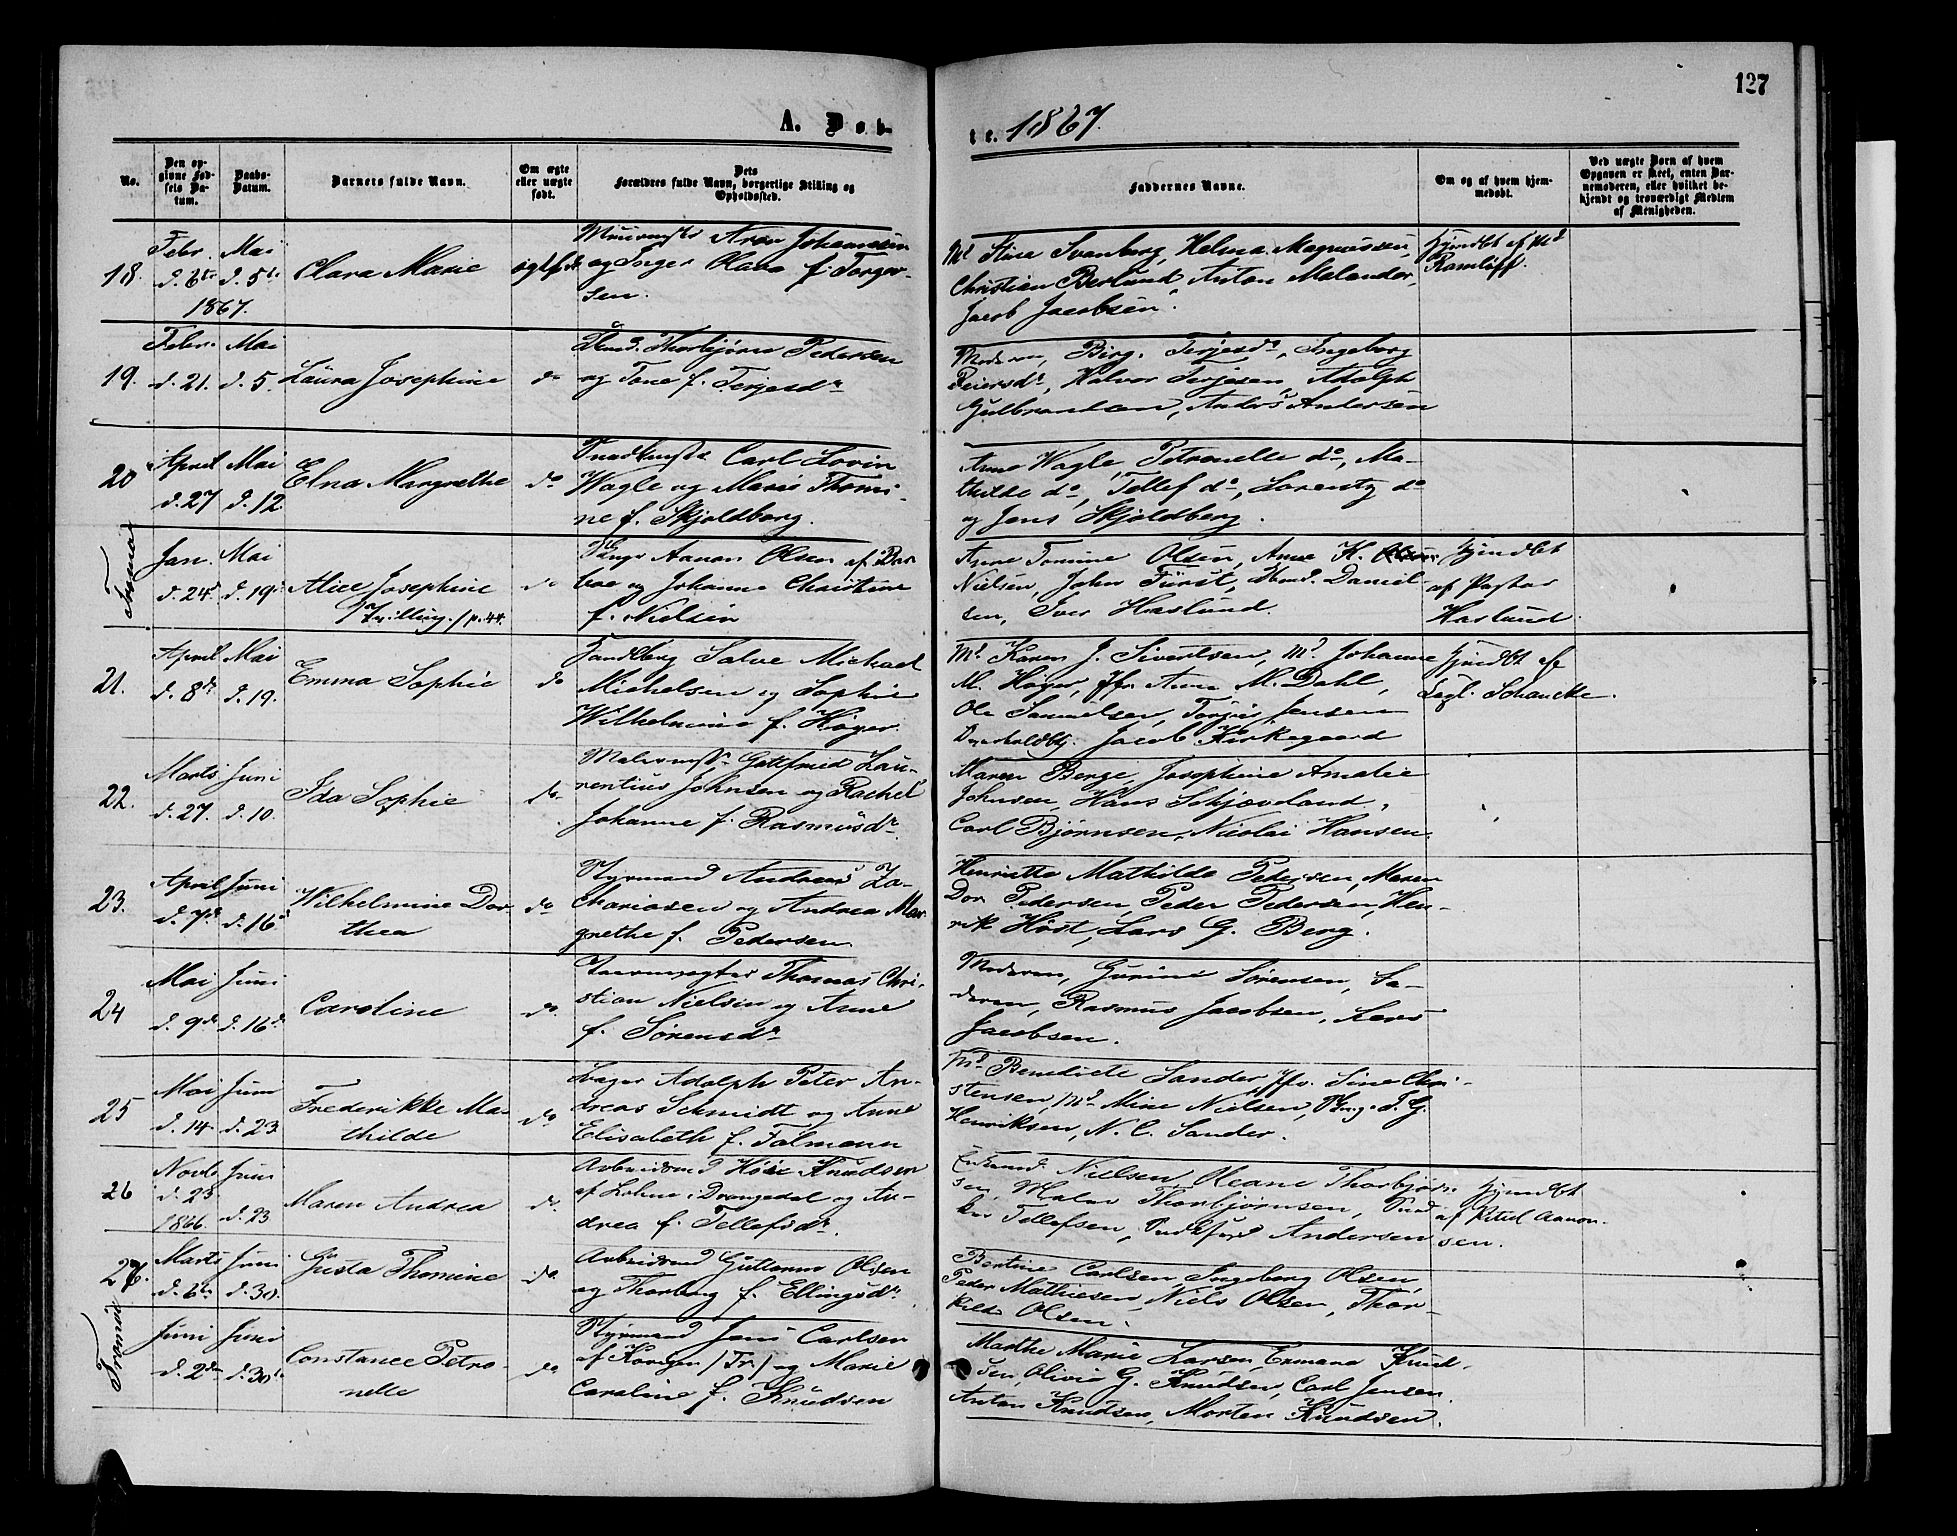 127
A. Døb-
te. 1867.
No.
Den op-
givne Fød-
sels Da-
tum.
Daabs-
Datum.
Barnets fulde Navn.
Om ægte
eller uægte
født.
Dets
Forældres fulde Navn, borgerlige Stilling og
Opholdssted.
Faddernes Navne.
Om og af hvem hjem-
medøbt.
Ved uægte Børn af hvem
Opgaven er skeet, enten Bar-
nemoderen, eller hvilket be-
kjendt og troværdigt Medlem
af Menigheden.
18.
Febr.
d. 6te
1867.
Mai
d. 5te
Clara Marie
ægtefdt
Johannesen
og Inger Olava f. Torger-
sen.
Md Stina Svanberg, Helma Magnussen,
Christian Berlund, Anton Malander,
Jacob Jacobsen.
Hjmdbt af Md
Ramløff.
19.
Febr.
d. 21.
Mai
d. 5.
Laura Josephine
do
Thorbjørn Pedersen
og Tone f. Terjesdr
Moderen, Birg. Terjesdr, Ingeborg
Peiersdr, Halvor Terjesen, Adolph
Gulbrandsen, Anders Andersen
20
April
d. 27
Mai
d. 12.
Elna Margrethe
do
Carl Lovin
Wagle og Maren Thomi-
ne f. Skjoldborg.
Anne Wagle, Petronelle do, Ma-
thilde do, Tellef do, Lorentz do
og Jens Skjoldberg.
Tromø
Jan.
d. 24
Mai
d. 19
Alice Josephine
/Tvilling./ p. 44.
do
Aanon Olsen af Bar-
boe og Johanne Christine
f. Nielsen
Anne Tomine Olsen, Anne K.
Nielsen, John Fürst, Daniel-
sen, Iver Haslund.
Hjmdbt
af Pastor
Haslund.
21.
April
d. 8de
Mai
d. 19.
Emma Sophie
do
Salve Michael
Michelsen og Sophie
Wilhelmine f. Høyer.
Md Karen J. Sivertsen, Md Johanne
M. Høyer, Jfr. Anne M. Dahl,
Ole Samuelsen, Torjus Jensen
Jacob Kirkegaard
Hjmdbt af
Schancke.
22.
Marts
d. 27.
Juni
d. 10.
Ida Sophie
do.
Malermstr Gottfried Lau-
rentius Johnsen og Rachel
Johanne f. Rasmusdr.
Maren Berge, Josephine Amalie
Johnsen, Hans Skjæveland,
Carl Bjørnsen, Nicolai Hansen.
23.
April
d. 7de
Juni
d. 16
Wilhelmine Dor-
thea
do
Styrmand Andreas Za-
chariasen og Andrea Mar-
grethe f. Pedersen.
Henriette Mathilde Pedersen, Maren
Dor. Pedersen, Peder Pedersen, Hen-
rik Høst, Lars G. Berg.
24
Mai
d. 9de
Juni
d. 16de
Caroline
do.
Thomas Chri-
stian Nielsen og Anne
f. Sørensdr
Moderen, Gurine Sørensen, Fa-
deren, Rasmus Jacobsen, Lars
Jacobsen.
25
Mai
d. 14
Juni
d. 23.
Frederikke Ma-
thilde
do
Adolph Peter An-
dreas Schmidt og Anne
Elisabeth f. Falmann
Md Benedicte Sander, Jfr. Sine Chri-
stensen, Md Mine Nielsen, T. G.
Henriksen, N. C. Sander.
26
Novbr
d. 23
1866.
Juni
d. 23
Maren Andrea
do.
Arbeidsmd Knudsen
af Lohne i Drangedal og An-
drea f. Tellefsdr.
Nielsen, Oleane Thorbjørn-
sen, Thorbjørnsen,
Tellefsen, Andersen
Hjmdbt
af Kitil Aanon-
sen.
27.
Marts
d. 6te
Juni
d. 30.
Gusta Thomine
do.
Arbeidsmd Guttorm Olsen
og Thorborg f. Ellingsdr.
Bertine Carlsen, Ingeborg Olsen,
Peder Mathiesen, Niels Olsen, Thor-
kild Olsen.
Tromø
Juni
d. 2den
Juni
d. 30te
Constance Petro-
nelle
do
Styrmand Jens Carlsen
af Kongen /Tr/ og Marie
Caroline f. Knudsen
Marthe Marie Larsen, Ermana Knud-
sen, Olivia G. Knudsen, Carl Jensen,
Anton Knudsen, Morten Knudsen.